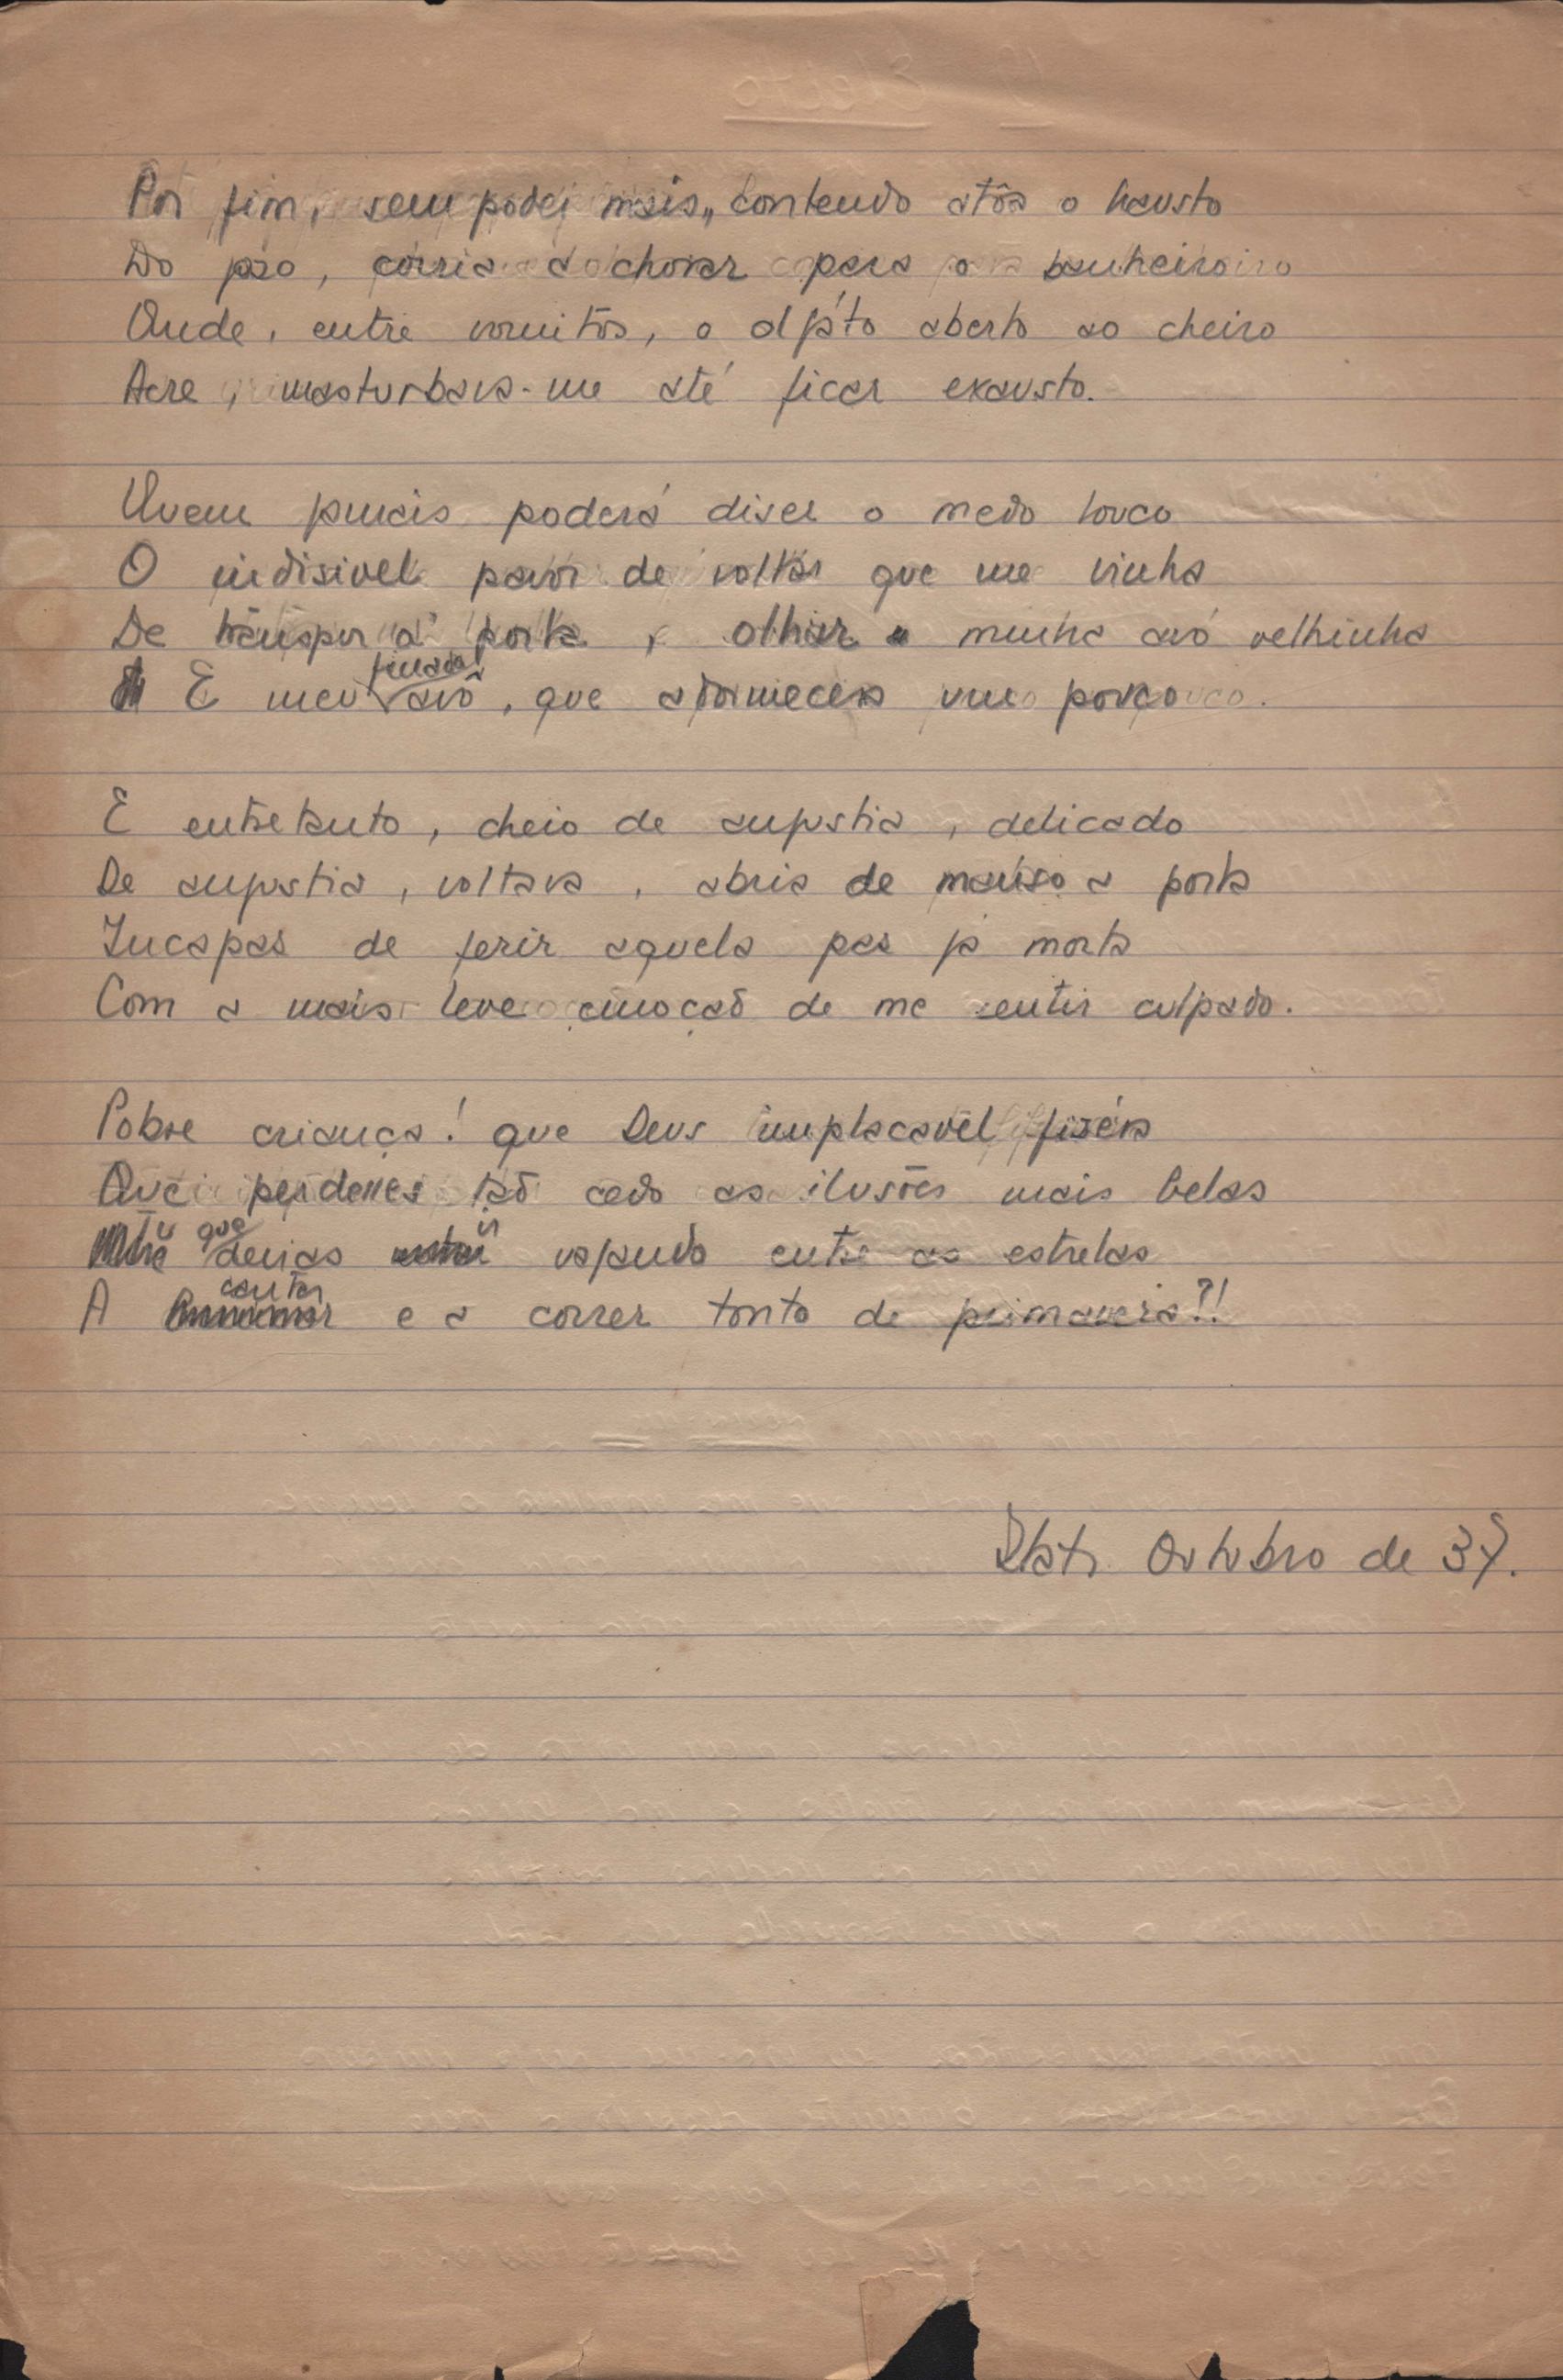 Por fim, sem poder mais, contendo atôa o hausto
Do gôzo, corria a chorar para o banheiro
Onde, entre vomitos, o olfáto aberto ao cheiro
Acre, masturbava-me até ficar exausto.
Quem jamais poderá diser o medo louco
O indisivel pavor de voltar que me vinha
De transpor a porta, olhar minha avó velhinha
E meu finado avô, que adormecera um pouco
E entretanto, cheio de angustia, delicado
De angustia, voltava, abria de manso a porta
Incapas de ferir aquela pas já morta
Com a mais leve emoção de me sentir culpado.
Pobre criança! que Deus implacavel fizéra
Que perdesses tão cedo as ilusões mais belas
Tu que devias ir vagando entre as estrelas
A cantar e a correr tonto de primavera?!
Outubro de 37.